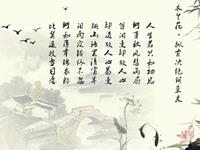 木兰花·拟古决绝词柬友
人生若只如初见
何事秋风悲画扇
等闲变却故人心
却道故人心易变
骊山语罢清宵半
泪雨零铃终不怨
何如薄幸锦衣郎
比翼连枝当日愿